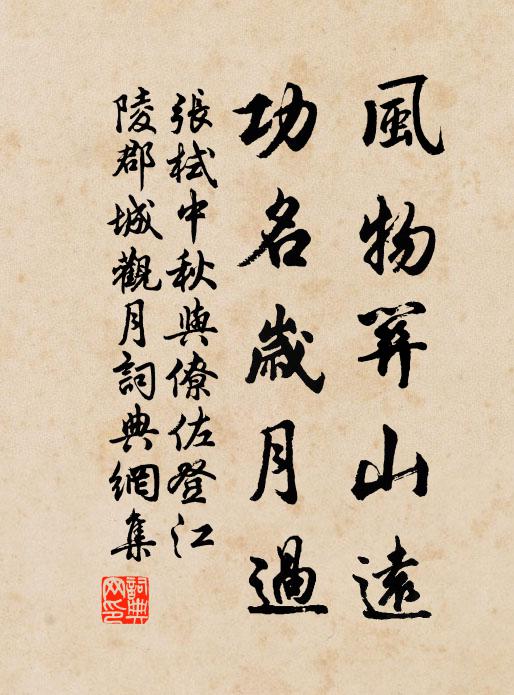 風物關山遠
功名歲月過
張栻中秋與僚佐登江
陵郡城觀月詞典網集
詞典
网印